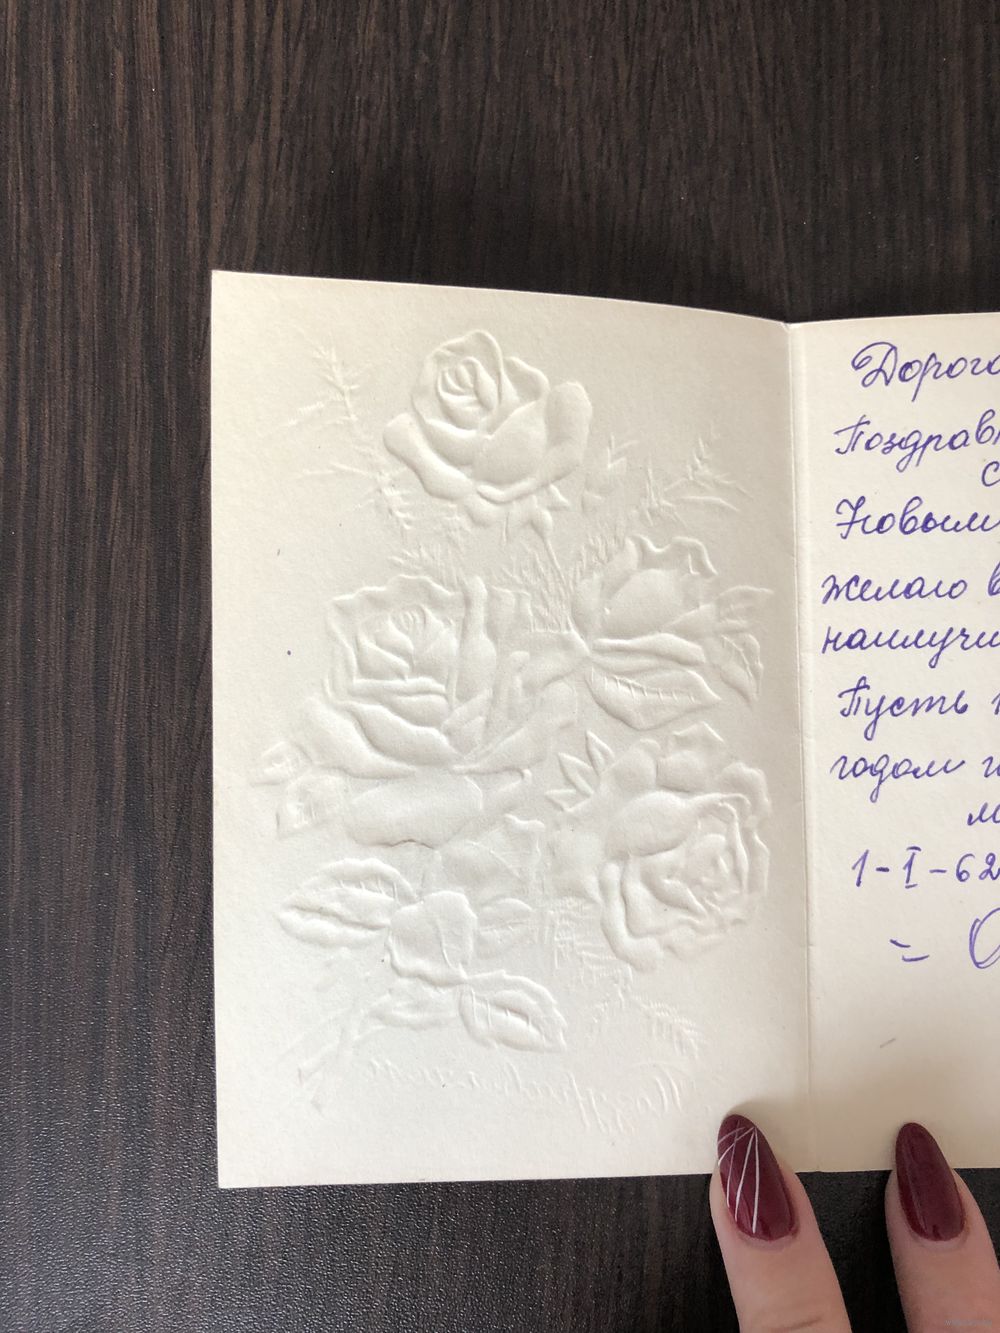 Дорого
Поздрав
с
Новым,
желаю в
наилучш
Пусть
годом
м
1-I-62
=
Поздравляем